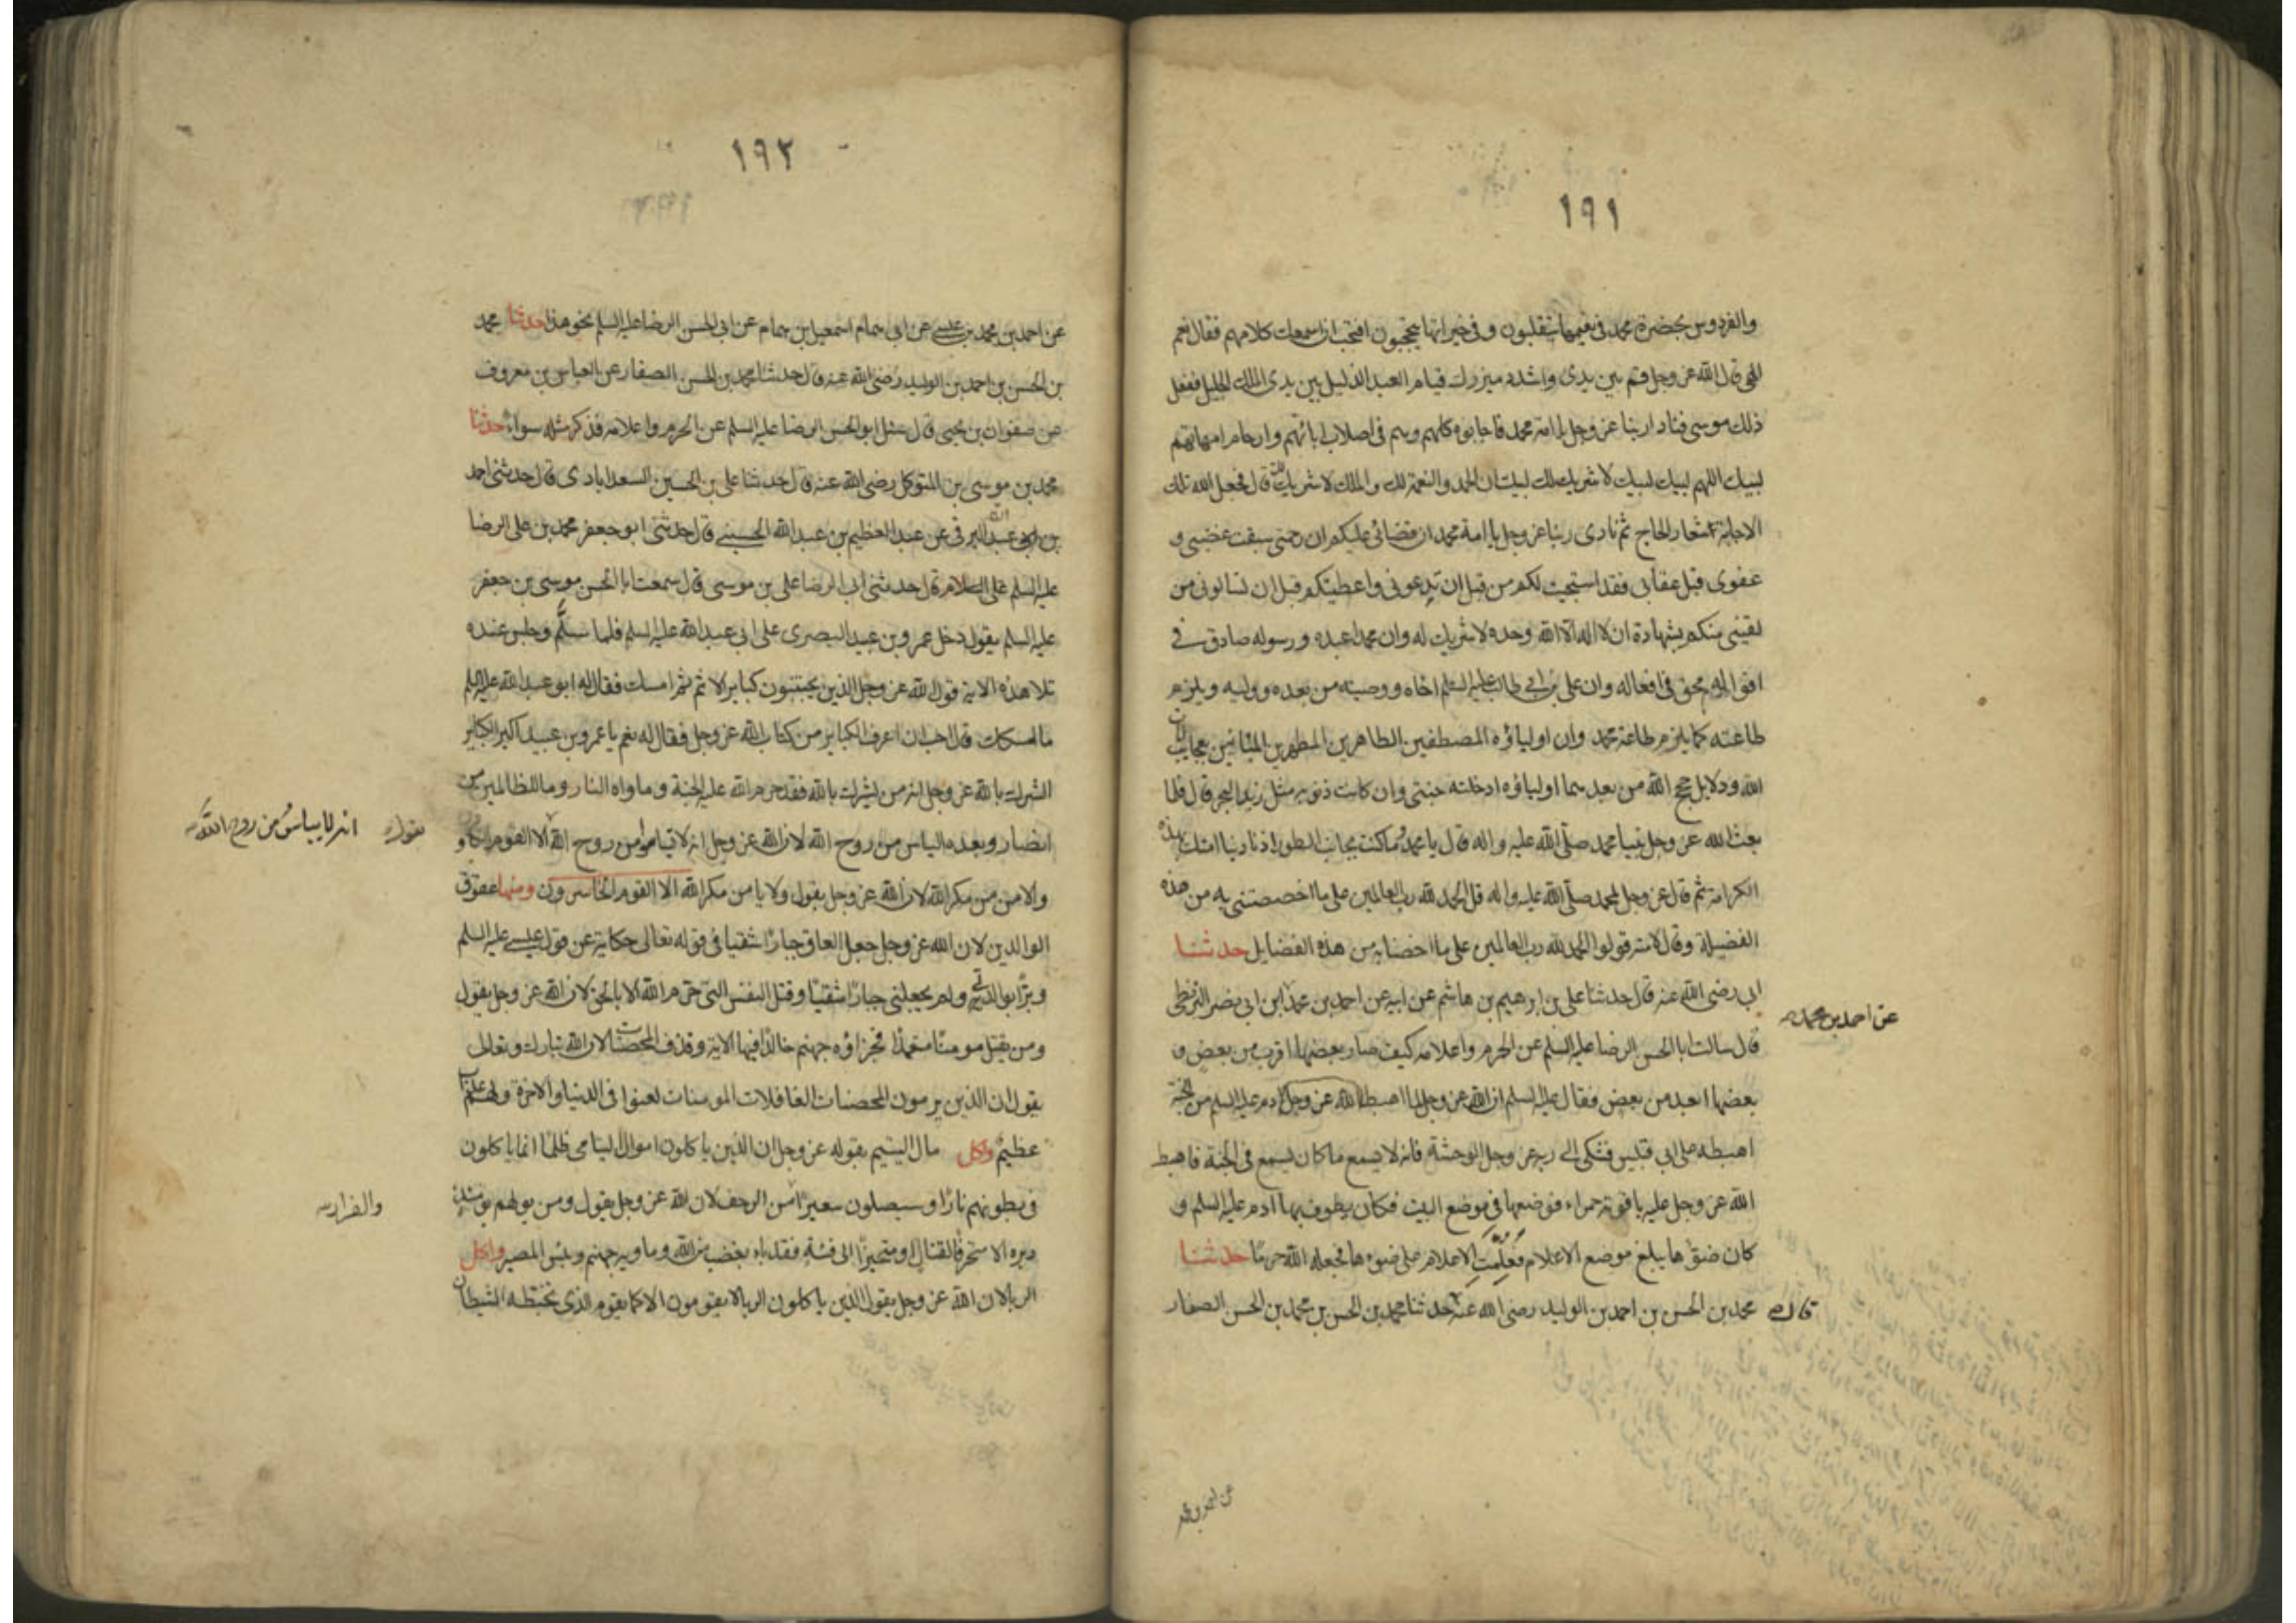 ١٩١
والفردوس بحضرة محمد في نعيمها يتقلبون و في خيراتها يتبجحون افتحب ان اسمعك كلامهم فقال نعم
الهي قال الله عز وجل قم بين يدي واشدد ميزرك قيام العبد الذليل بين يدي الملك الجليل ففعل
ذلك موسى فنادا ربنا عز وجل يا امة محمد فاجابوه كلهم وهم في اصلاب ابائهم وارحام امهاتهم
لبيك اللهم لبيك لبيك لا شريك لك لبيك ان الحمد والنعمة لك والملك لا شريك لك قال فجعل الله تلك
الاجابة شعار الحاج ثم نادى ربنا عز وجل يا امة محمد ان قضائي عليكم ان رحمتي سبقت غضبي و
عفوي قبل عقابي فقد استجبت لكم من قبل ان تدعوني واعطيتكم قبل ان تسالوني من
لقيني منكم بشهادة ان لا اله الا الله وحده لا شريك له وان محمدا عبده ورسوله صادق في
اقواله محق في افعاله وان علي بن ابي طالب عليه السلم اخاه ووصيه من بعده ووليه ويلزم
طاعته كما يلزم طاعة محمد وان اولياؤه المصطفين الطاهرين المطهرين بعجايب
الله ودلايل حجج الله من بعدهما اولياؤه ادخلته جنتي وان كانت ذنوبه مثل زبد البحر قال فلما
بعث الله عز وجل نبيا محمد صلى الله عليه واله قال يا محمد وما كنت بجانب الطور اذ نادينا امتك بهذه
الكرامة ثم قال عز وجل لمحمد صلى الله عليه واله قل الحمد لله رب العالمين على ما اخصصتني به من هذه
الفضيلة وقال لامته قولوا الحمد لله رب العالمين على ما اخصنا به من هذه الفضايل حدثنا
ابي رضي الله عنه قال حدثنا علي بن ابرهيم بن هاشم عن ابيه عن احمد بن محمد ابن ابي نصر البزنطي
عن احمد بن محمد
قال سالت ابا الحسن الرضا عليه السلم عن الحرم واعلامه كيف صار بعضها اقرب من بعض و
بعضها ابعد من بعض فقال عليه السلم ان الله عز وجل لما اهبط الله عز وجل ادم عليه السلم من الجنة
اهبطه على ابي قبيس فشكى الى ربه عز وجل الوحشة فانه لا يسمع ما كان يسمع في الجنة فاهبط
الله عز وجل عليه ياقوتة حمراء فوضعها في موضع البيت فكان يطوف بها ادم عليه السلم و
كان ضوؤها يبلغ موضع الاعلام فعلمت الاعلام على ضوءها فجعله الله حرما حدثنا
محمد بن الحسن بن احمد بن الوليد رضي الله عنه حدثنا محمد بن الحسن بن محمد بن الحسن الصفار
قال
عن احمد بن محمد
١٩٢
عن احمد بن محمد بن عيسى عن ابي همام اسمعيل بن همام عن ابي الحسن الرضا عليه السلم نحو هذا حدثنا محمد
بن الحسن بن احمد بن الوليد رضي الله عنه قال حدثنا محمد بن الحسن الصفار عن العباس بن معروف
عن صفوان بن يحيى قال سئل ابو الحسن الرضا عليه السلم عن الحرم واعلامه فذكر مثله سواء حدثنا
محمد بن موسى بن المتوكل رضي الله عنه قال حدثنا علي بن الحسين السعدابادي قال حدثني احمد
بن ابي عبد الله البرقي عن عبد العظيم بن عبد الله الحسني قال حدثني ابو جعفر محمد بن علي الرضا
عليه السلم قال حدثني ابي الرضا علي بن موسى قال سمعت ابا الحسن موسى بن جعفر
عليه السلم يقول دخل عمرو بن عبيد البصري على ابي عبد الله عليه السلم فلما سلم وجلس عنده
تلا هذه الاية قول الله عز وجل الذين يجتنبون كباير الاثم ثم امسك فقال له ابو عبد الله عليه السلم
ما اسكتك قال احب ان اعرف الكباير من كتاب الله عز وجل فقال له نعم يا عمرو بن عبيد اكبر الكباير
الشرك بالله عز وجل انه من يشرك بالله فقد حرم الله عليه الجنة وماواه النار وما للظالمين من
انصار وبعده الياس من روح الله لان الله عز وجل من روح الله الا القوم
يقول انه لا يياس من روح الله
والامن من مكر الله لان الله عز وجل يقول ولا يامن مكر الله الا القوم الخاسرون ومنها عقوق
الوالدين لان الله عز وجل جعل العاق جبارا شقيا في قوله تعالى حكاية عن قول عيسى عليه السلم
وبرا بوالدتي ولم يجعلني جبارا شقيا وقتل النفس التي حرم الله الا بالحق لان الله عز وجل يقول
ومن يقتل مومنا متعمدا فجزاؤه جهنم خالدا فيها الاية وقذف المحصنات لان الله تبارك وتعالى
يقول ان الذين يرمون المحصنات الغافلات المومنات لعنوا في الدنيا والاخرة ولهم عذاب
عظيم واكل مال اليتيم بقوله عز وجل ان الذين ياكلون اموال اليتامى ظلما انما ياكلون
في بطونهم نارا وسيصلون سعيرا من الزحف لان الله عز وجل يقول ومن يولهم يومئذ
والفرار
دبره الا متحرفا لقتال او متحيزا الى فئة فقد باء بغضب من الله وماويه جهنم وبئس المصير واكل
الربا لان الله عز وجل يقول الذين ياكلون الربا لا يقومون الا كما يقوم الذي يتخبطه الشيطان